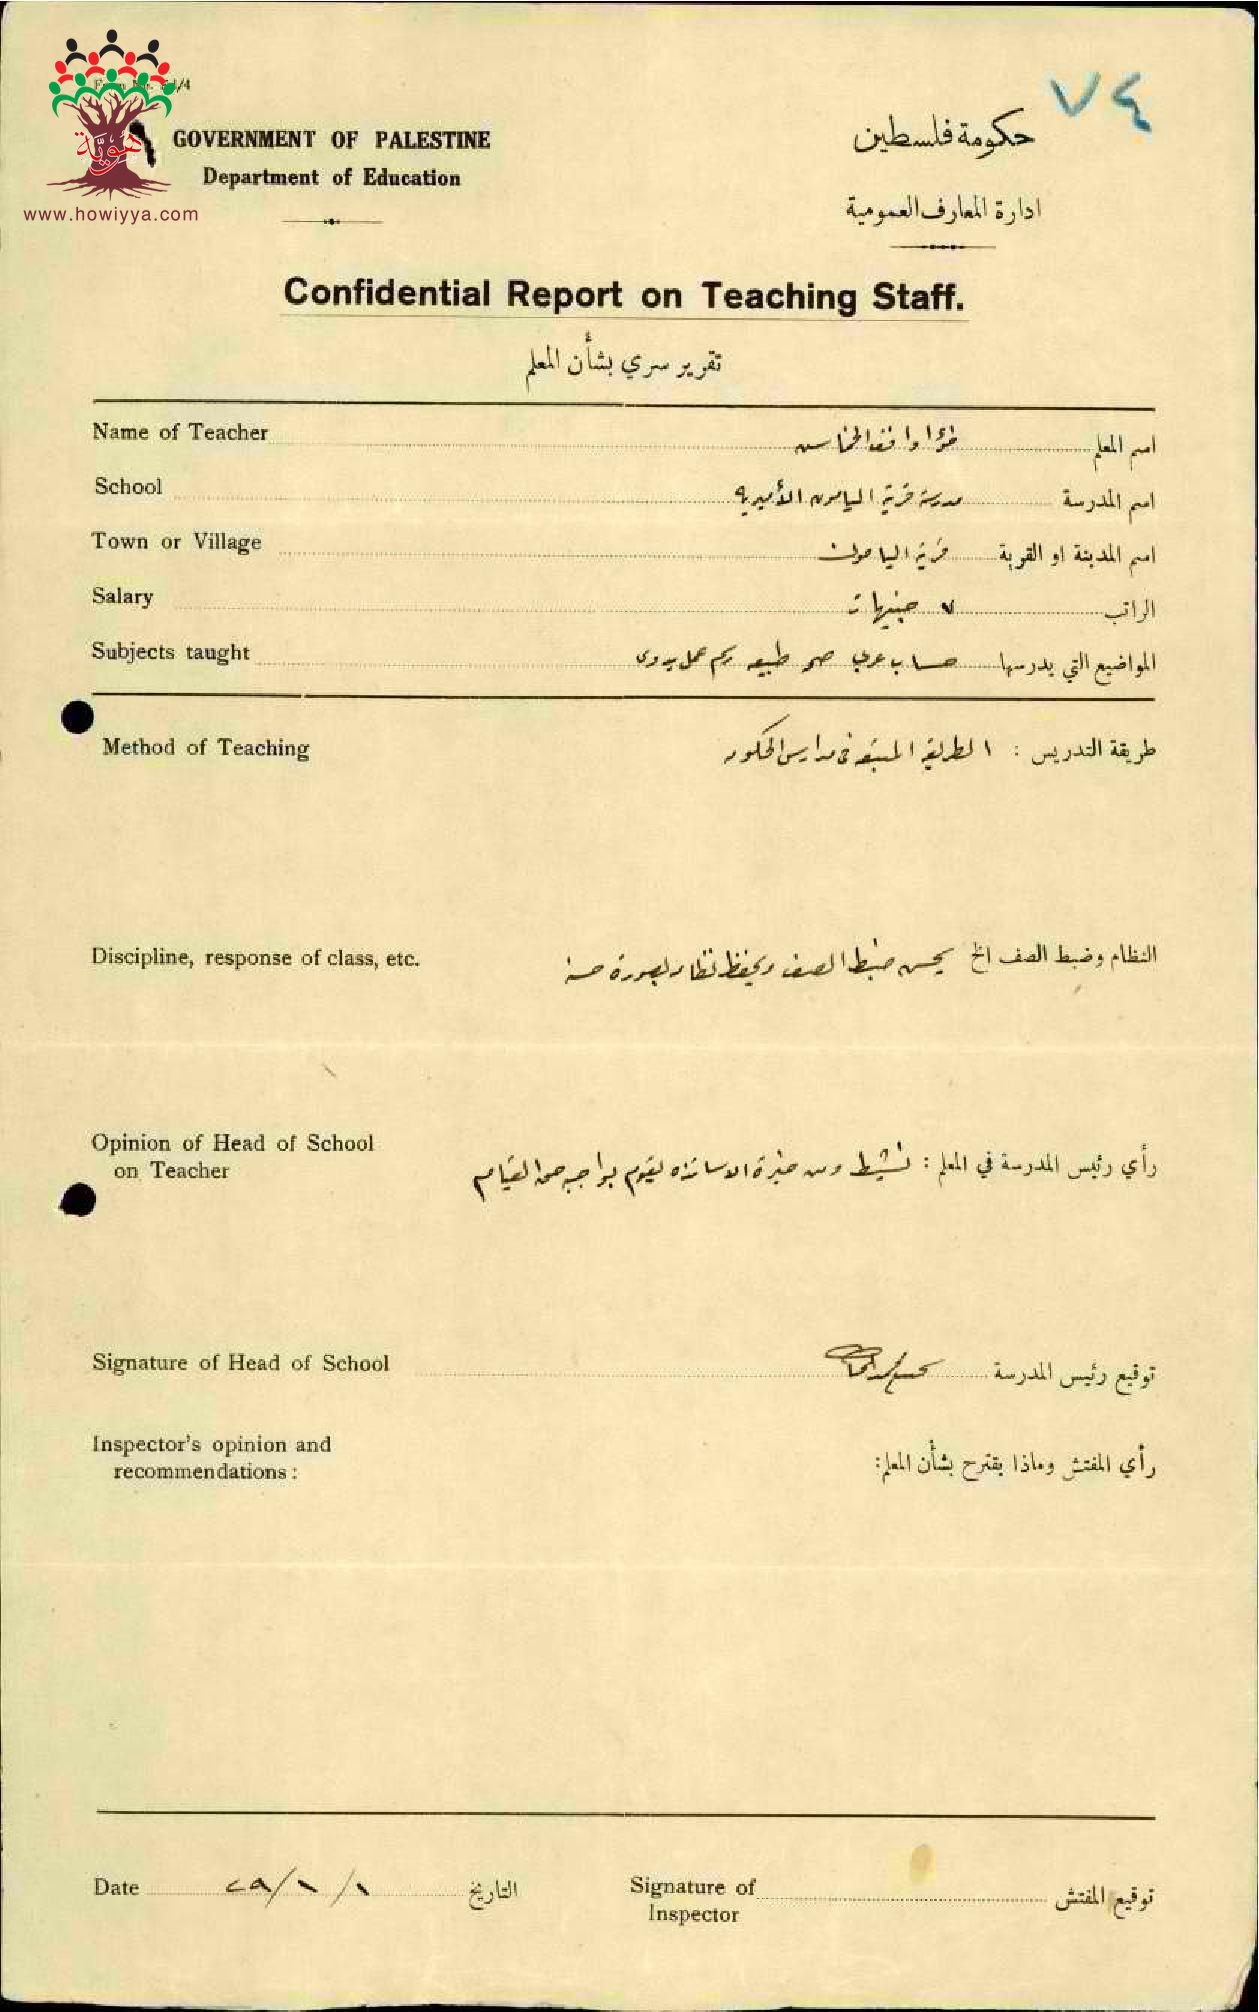 ٧٤
Form No. Ed/4
هوية
www.howiyya.com
GOVERNMENT OF PALESTINE
Department of Education
حكومة فلسطين
ادارة المعارف العمومية
Confidential Report on Teaching Staff.
تقرير سري بشأن المعلم
Name of Teacher
اسم المعلم
School
اسم المدرسة مدرسة قرية اليامون الأميرية
Town or Village
اسم المدينة او القرية قرية اليامون
Salary
الراتب ٧ جنيهات
Subjects taught
المواضيع التي يدرسها حساب عربي صحة طبيعه رسم عمل يدوى
Method of Teaching
طريقة التدريس : الطريقة المتبعه في مدارس الحكومه
Discipline, response of class, etc.
النظام وضبط الصف الخ يحسن ضبط الصف ويحفظ نظامه بصورة حسنه
Opinion of Head of School
on Teacher
رأي رئيس المدرسة في المعلم : نشيط ومن خيرة الاساتذه يقوم بواجبه حق القيام
Signature of Head of School
توقيع رئيس المدرسة
Inspector's opinion and
recommendations :
رأي المفتش وماذا يقترح بشأن المعلم:
Date
التاريخ
Signature of
Inspector
توقيع المفتش